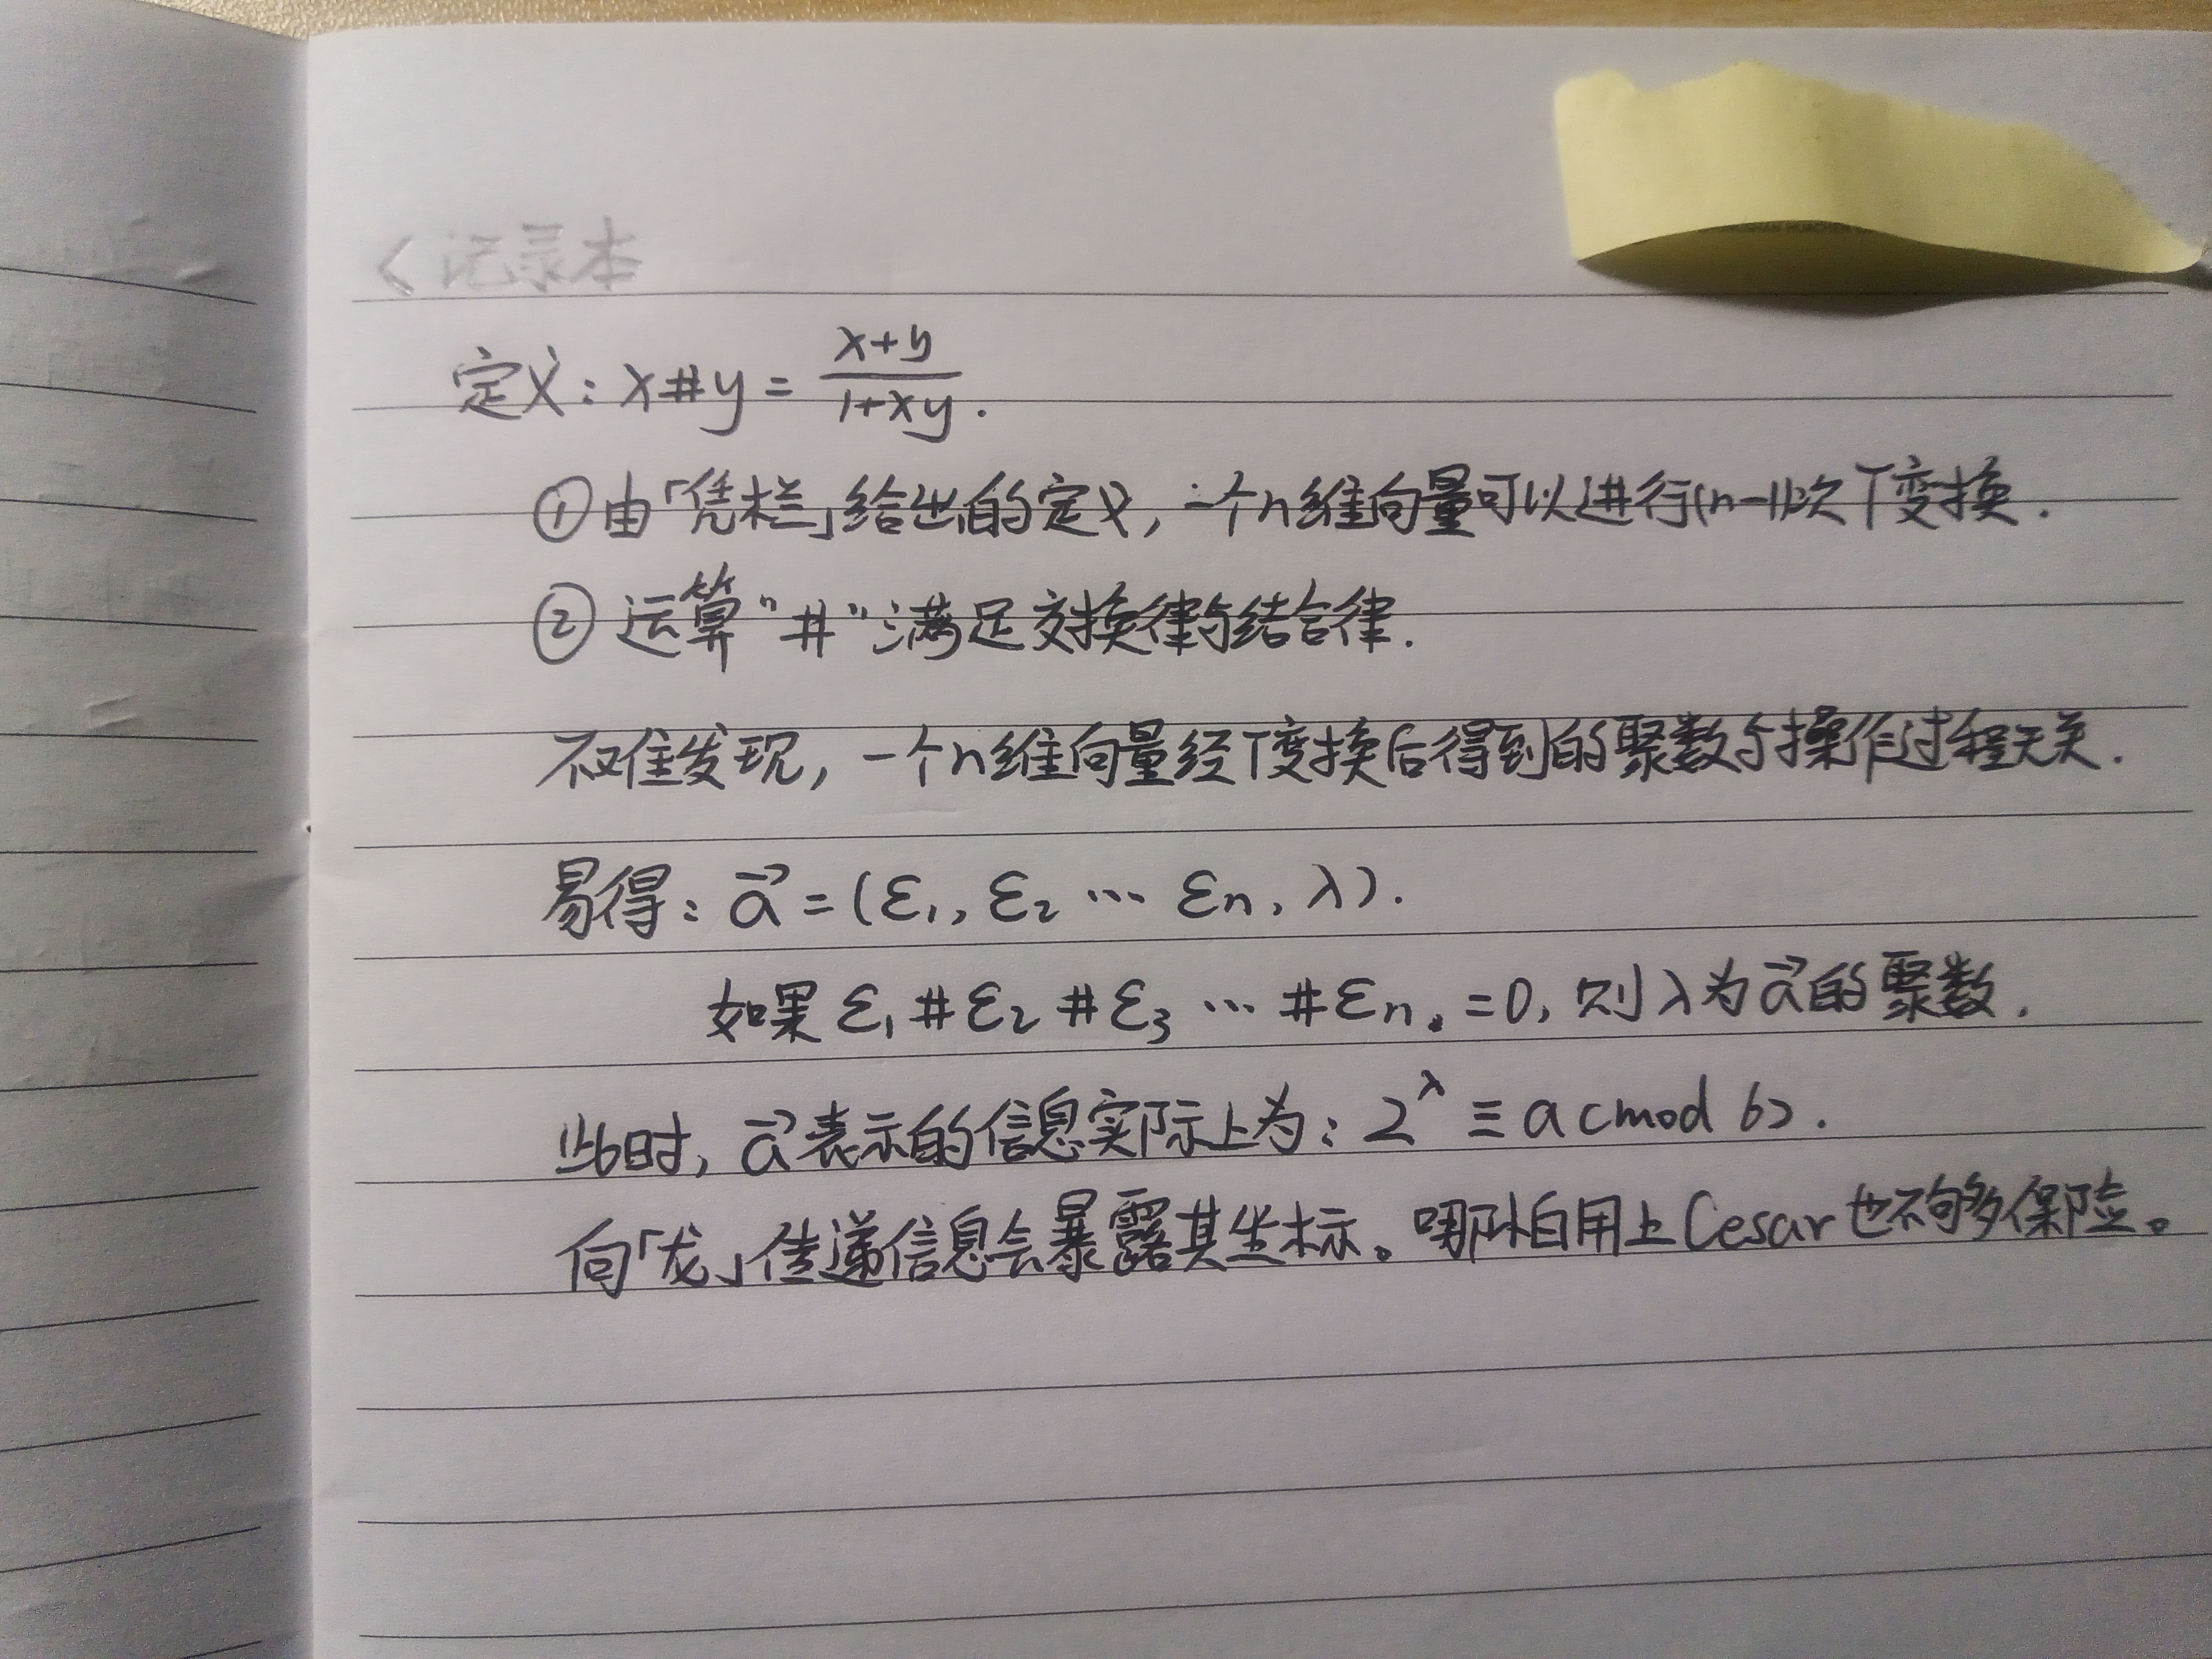 < 记录本
定义: x#y = \frac{x+y}{1+xy}.
①由「凭栏」给出的定义, 一个n维向量可以进行(n-1)次T变换.
②运算"#"满足交换律与结合律.
不难发现, 一个n维向量经T变换后得到的聚数与操作过程无关.
易得: \vec{a} = (ε₁, ε₂ ⋯ εn, λ).
如果 ε₁#ε₂#ε₃ ⋯ #εn. =0, 则λ为\vec{a}的聚数.
此时, \vec{a}表示的信息实际上为: 2^λ ≡ a (mod 6).
向「龙」传递信息会暴露其坐标。哪怕用上Cesar也不够多保险。